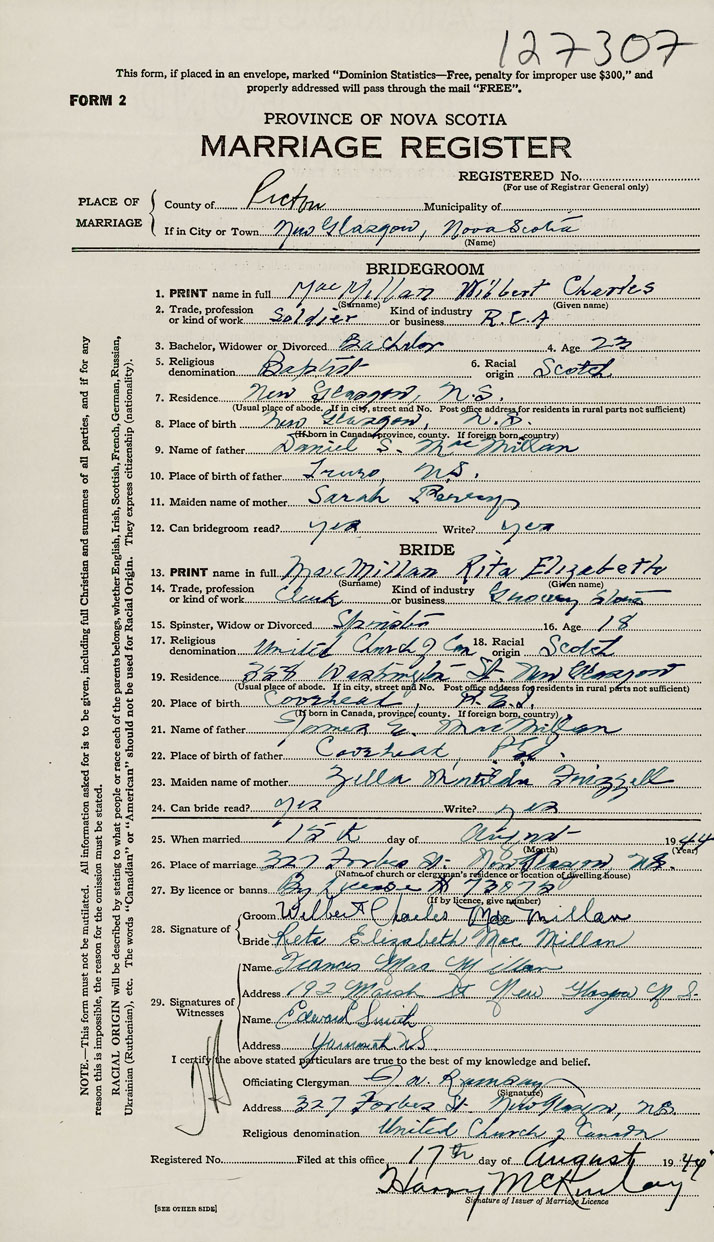 127307
This form, if placed in an envelope, marked "Dominion Statistics—Free, penalty for improper use $300," and
properly addressed will pass through the mail "FREE".
FORM 2
PROVINCE OF NOVA SCOTIA
MARRIAGE REGISTER
REGISTERED No.
(For use of Registrar General only)
PLACE OF MARRIAGE
County of Pictou Municipality of
If in City or Town New Glasgow, Nova Scotia
(Name)
BRIDEGROOM
1. PRINT name in full MacMillan Wilbert Charles
(Surname) (Given name)
2. Trade, profession or kind of work Soldier Kind of industry or business R.C.A
3. Bachelor, Widower or Divorced Bachelor 4. Age 23
5. Religious denomination Baptist 6. Racial origin Scotch
7. Residence New Glasgow, N.S.
(Usual place of abode. If in city, street and No. Post office address for residents in rural parts not sufficient)
8. Place of birth New Glasgow, N.S.
(If born in Canada, province, county. If foreign born, country)
9. Name of father Daniel S. MacMillan
10. Place of birth of father Truro, N.S.
11. Maiden name of mother Sarah
12. Can bridegroom read? yes Write? yes
BRIDE
13. PRINT name in full MacMillan Rita Elizabeth
(Surname) (Given name)
14. Trade, profession or kind of work Clerk Kind of industry or business Grocery Store
15. Spinster, Widow or Divorced Spinster 16. Age 18
17. Religious denomination United Church of Can 18. Racial origin Scotch
19. Residence Washington St. New Glasgow
(Usual place of abode. If in city, street and No. Post office address for residents in rural parts not sufficient)
20. Place of birth Covehead, P.E.I.
(If born in Canada, province, county. If foreign born, country)
21. Name of father James E. MacMillan
22. Place of birth of father Covehead,
23. Maiden name of mother Zella Matilda Frizzell
24. Can bride read? yes Write? yes
25. When married 15th day of August 1944
(Month) (Year)
26. Place of marriage 327 Forbes St. New Glasgow, N.S.
(Name of church or clergyman's residence or location of dwelling house)
27. By licence or banns By Licence
(If by licence, give number)
28. Signature of
Groom Wilbert Charles MacMillan
Bride Reta Elizabeth MacMillan
29. Signatures of Witnesses
Name Frances MacMillan
Address 192 Marsh St New Glasgow N.S.
Name Edward Smith
Address Yarmouth N.S.
I certify the above stated particulars are true to the best of my knowledge and belief.
Officiating Clergyman Ramsay
(Signature)
Address 327 Forbes St. New Glasgow, N.S.
Religious denomination United Church of Canada
Registered No. Filed at this office 17th day of August 1944
Harry McKinlay
Signature of Issuer of Marriage Licence
[SEE OTHER SIDE]
NOTE.—This form must not be mutilated. All information asked for is to be given, including full Christian and surnames of all parties, and if for any
reason this is impossible, the reason for the omission must be stated.
RACIAL ORIGIN will be described by stating to what people or race each of the parents belongs, whether English, Irish, Scottish, French, German, Russian,
Ukrainian (Ruthenian), etc. The words "Canadian" or "American" should not be used for Racial Origin. They express citizenship (nationality).